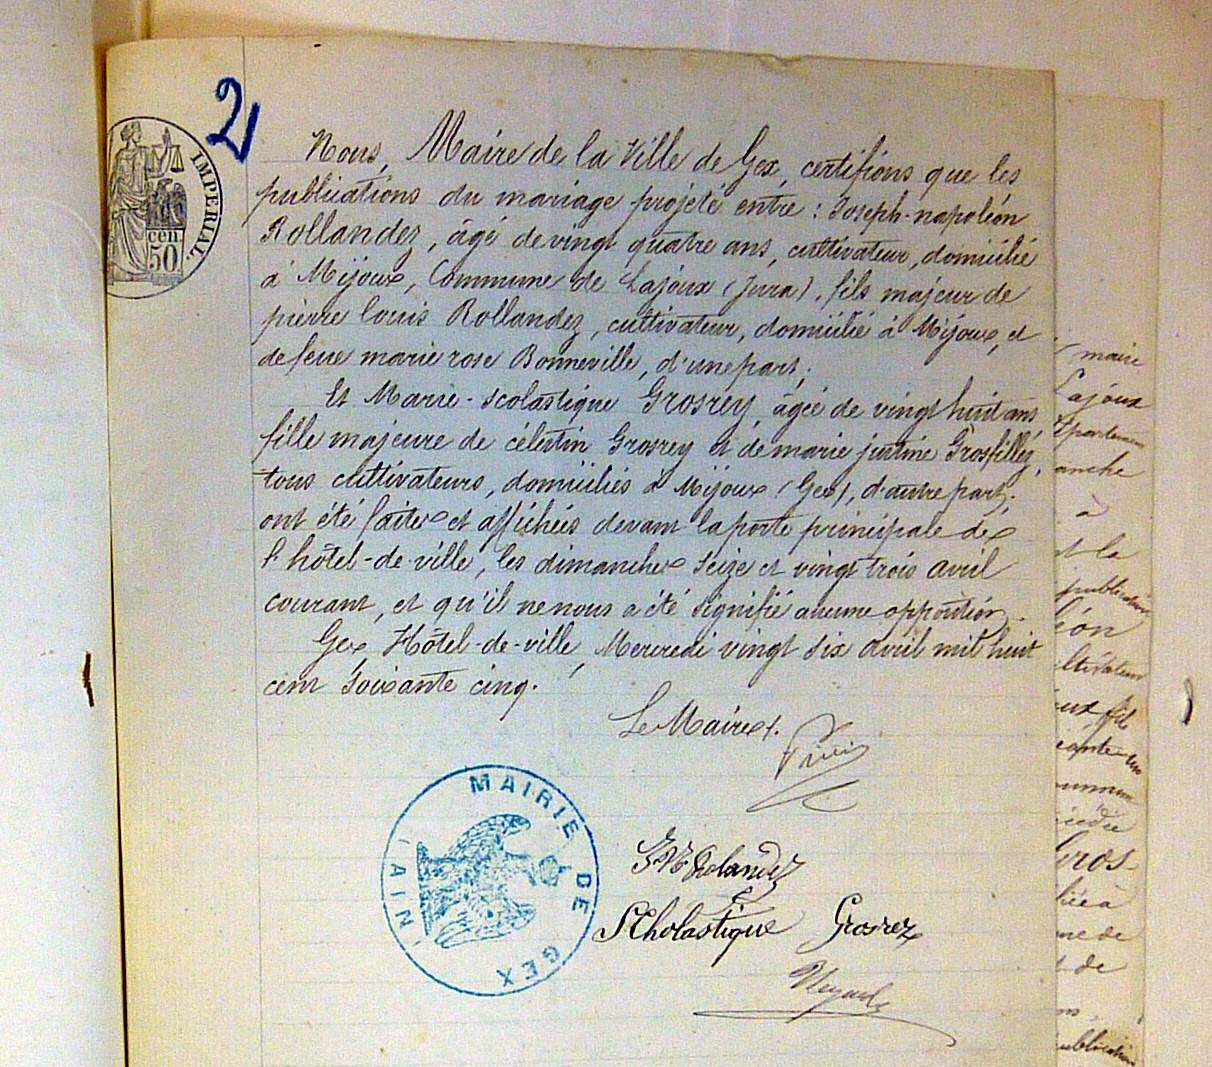 2
IMPERIAL.
cen
50
Nous, Maire de la Ville de Gex, certifions que les
publications du mariage projeté entre : Joseph-napoléon
Rollandez, âgé de vingt quatre ans, cultivateur, domicilié
à Mijoux, Commune de Lajoux (Jura), fils majeur de
pierre louis Rollandez, cultivateur, domicilié à Mijoux, et
de feue marie rose Bonneville, d'une part;
Et Marie-Scolastique Grosrey, âgée de vingt huit ans,
fille majeure de célestin Grosrey et de marie justine Grosfilley,
tous cultivateurs, domiciliés à Mijoux (Gex), d'autre part;
ont été faites et affichées devant la porte principale de
l'hôtel-de-ville, les dimanches seize et vingt trois avril
courant, et qu'il ne nous a été signifié aucune opposition.
Gex Hôtel-de-ville, Mercredi vingt six avril mil huit
cent soixante cinq.
Le Maire
MAIRIE DE GEX
(AIN)
J N Rolandez
Scholastique Grosrez
maire
Lajoux
à
et la
publication
léon
cultivateur
Gros-
née à
ne de
de
publication